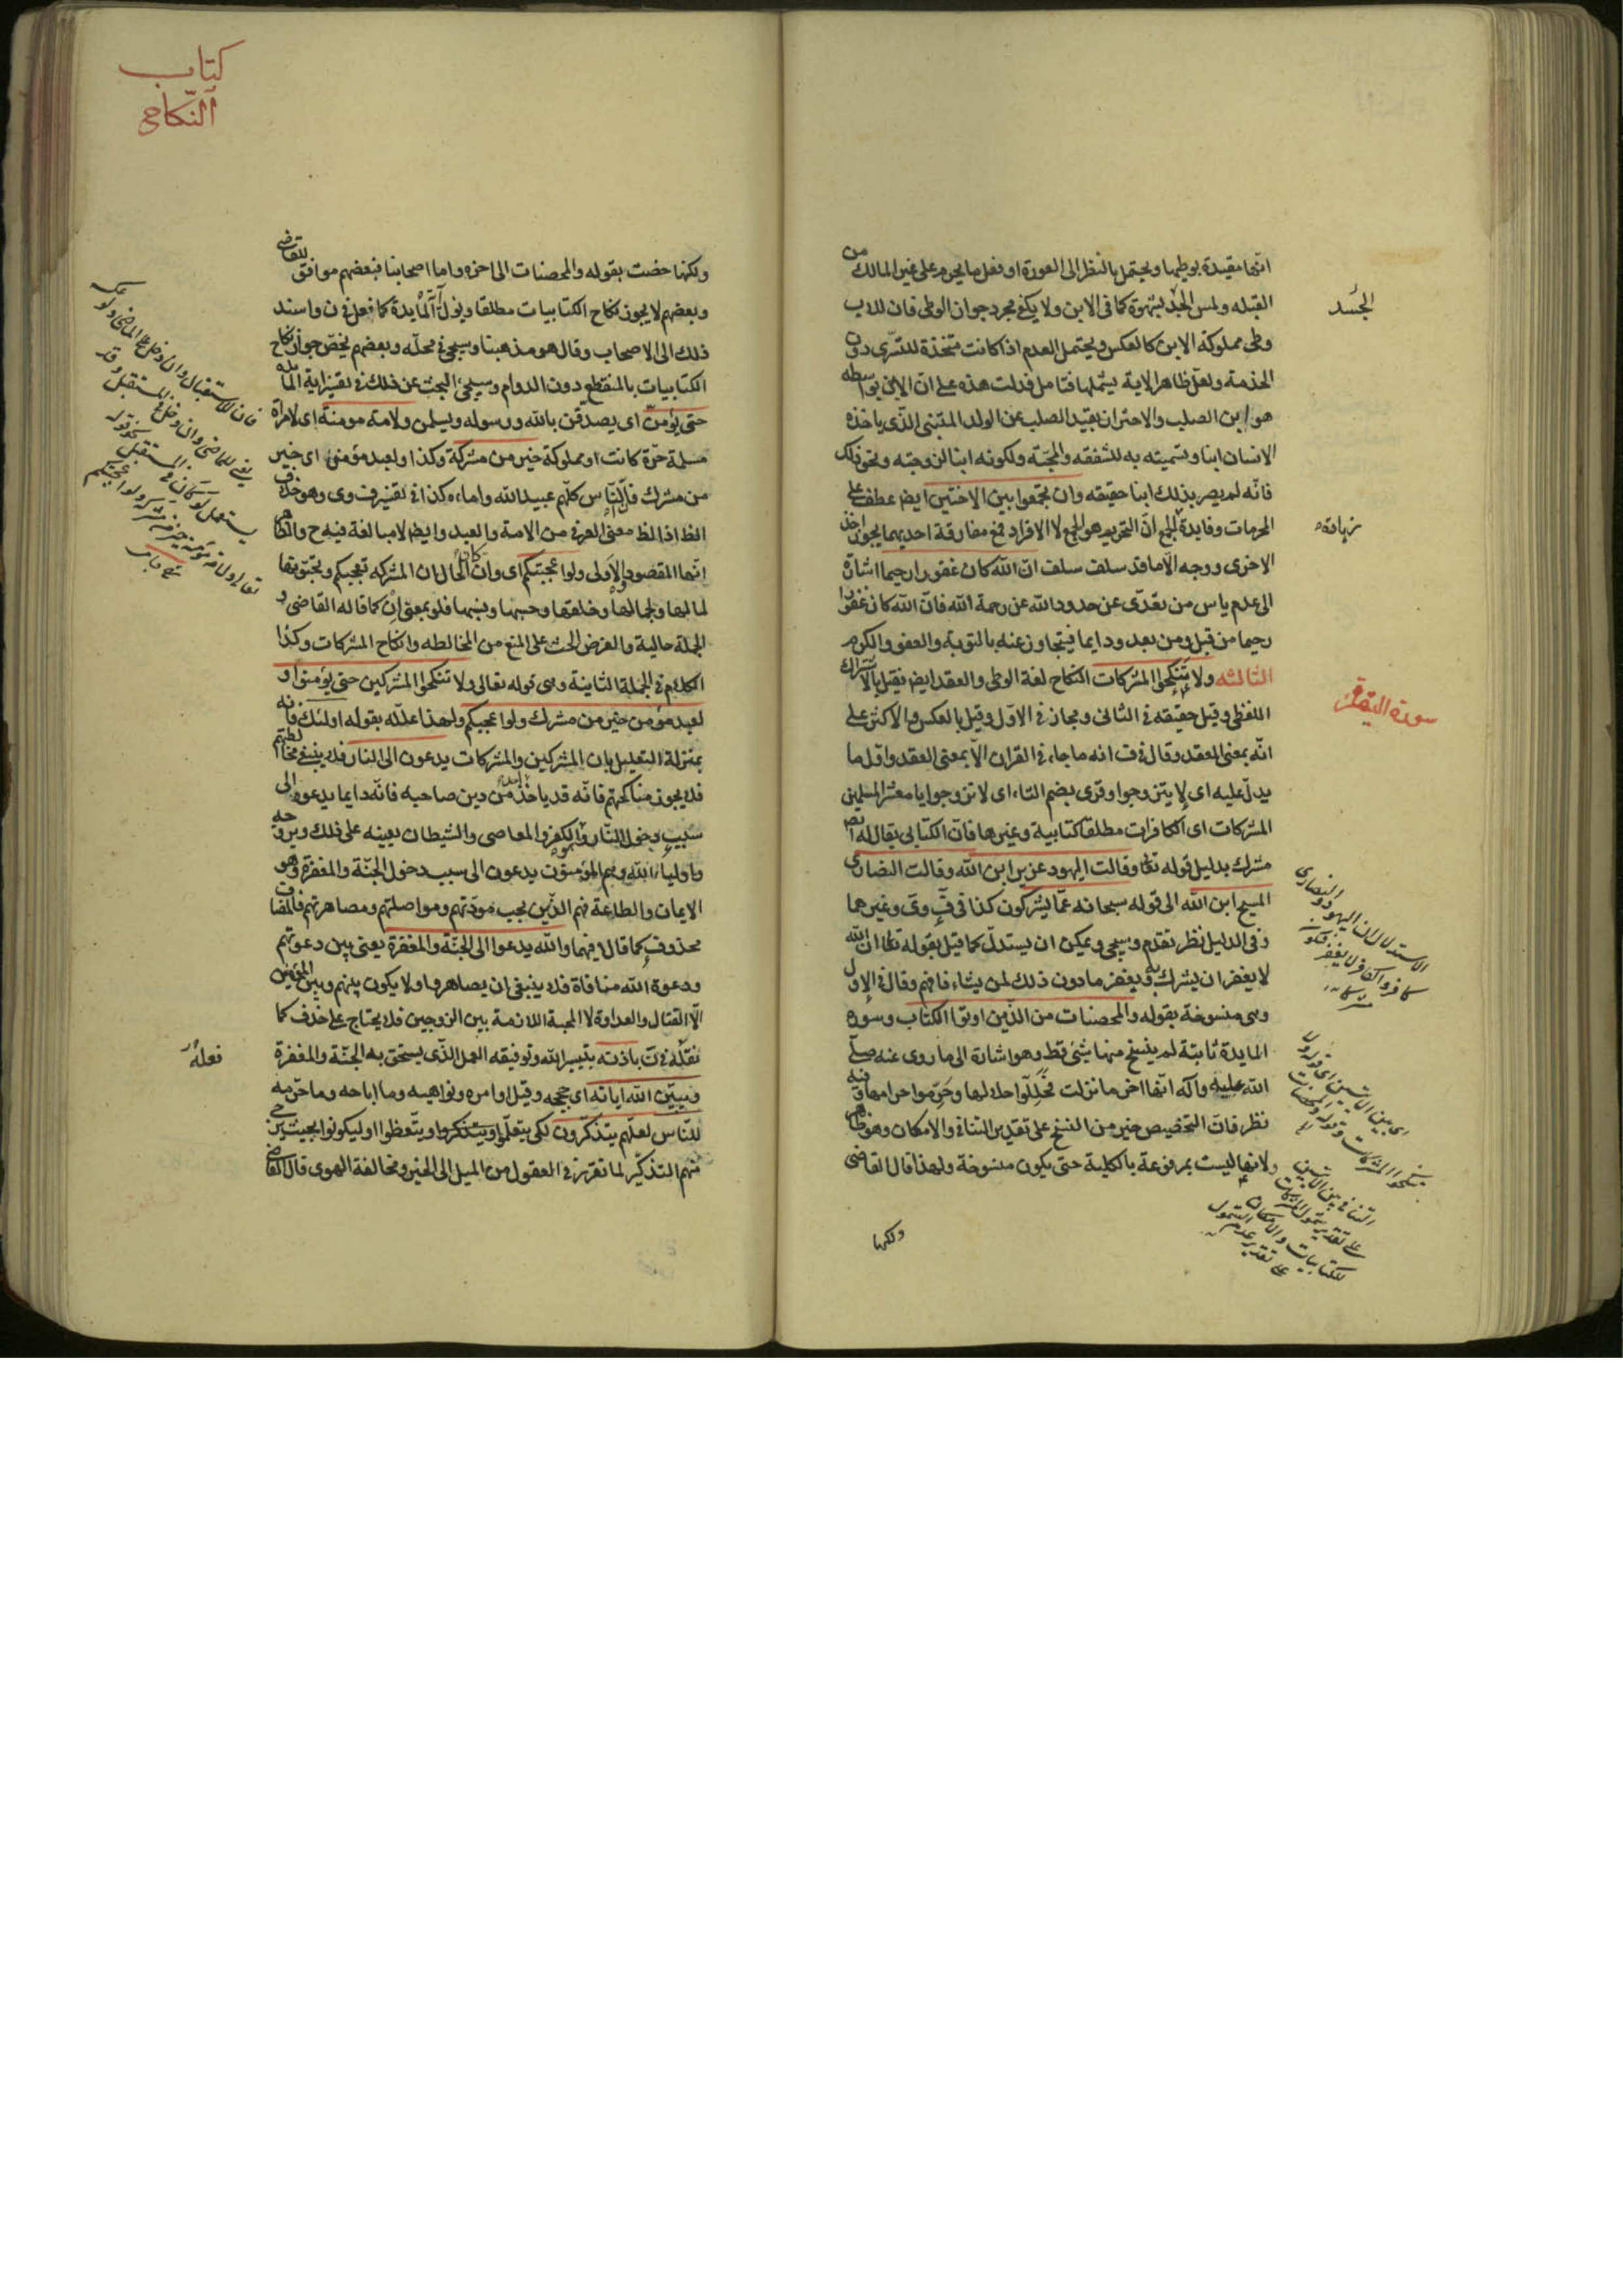 انّها مقيدة بوطيها ويحتمل بالنظر الى العورة او فعل ما يحرم على غير المالك من
القبله ولمس الجسد بشهوة كما فى الابن ولا يكفى مجرد جواز الوطى فان للاب
وطى مملوكة الابن كالعكس ويحتمل العدم اذا كانت متخذة للتسرى دون
الخدمة ولعل ظاهر الاية يشملها فتامل فدلت هذه على ان الابن بواسطه
هو ابن الصلب والاحتراز بقيد الصلب عن الولد المتبنى الذى ياخذه
الانسان ابنا ويسميته به للشفقه والمحبّة ولكونه ابنا لزوجته ونحو ذلك
فانّه لم يصر بذلك ابنا حقيقه وان تجمعوا بين الاختين ايض عطف على
المحرمات وفايدة الجمع انّ التحريم هو الجمع لا الافراد فمع مفارقة احديهما يجوز اخذ
الاخرى ووجه الّا ما قد سلف سلف انّ الله كان غفورا رحيما اشارة
الى عدم ياس من تعدّى عن حدود الله عن رحمة الله فانّ الله كان غفورا
رحيما من قبل ومن بعد ودايما فيتجاوز عنه بالتوبة والعفو والكرم
الثالثه ولا تنكحوا المشركات النكاح لغة الوطى والعقد ايض فقيل بالاشتراك
اللفظى وقيل حقيقه فى الثانى ومجاز فى الاوّل وقيل بالعكس والاكثر على
انّه بمعنى العقد وقال فى ف انه ما جاء فى القران الّا بمعنى العقد واوّل ما
يدلّ عليه اى لا يتزوجوا وقرى بضم التاء اى لا تزوجوا يا معشر المسلمين
المشركات اى الكافرات مطلقا كتابية وغيرها فانّ الكتابى يقال له ايض
مشرك بدليل قوله تعا وقالت اليهود عزير ابن الله وقالت النصارى
المسيح ابن الله الى قوله سبحانه عمّا يشركون كذا فى ف وق وغيرهما
وفى الدليل نظر تقدم وسيجى ويمكن ان يستدلّ كما قيل بقوله تعا انّ الله
لا يغفر ان يشرك به ويغفر ما دون ذلك لمن يشاء فافهم وقال فى الاول
وهى منسوخة بقوله والمحصنات من الذّين اوتوا الكتاب وسوره
المايدة ثابتة لم ينسخ منها شئ قط وهو اشارة الى ما روى عنه صلّى
الله عليه وآله انّها اخر ما نزلت فحلّلوا حلالها وحرّموا حرامها وفيه
نظر فانّ التخصيص خير من النسخ على تقدير التنافى والامكان وهو ظاهر
ولانها ليست بمرفوعة بالكلية حتى يكون منسوخة ولهذا قال القاضى
ولكنها
الجسد
سورة البقرة
الاستدلال ان اليهود والنصارى
كافر والكافر لا يغفر فيكون
مشركا
التنافى بين الايتين
على تقدير شمول المشركات
للكتابيات والامكان
على تقدير عدم الشمول
كتاب
النّكاح
ولكنها خصت بقوله والمحصنات الى اخره واما اصحابنا فبعضهم موافق للقاضى
وبعضهم لا يجوز نكاح الكتابيات مطلقا وياول اية المايدة كما فعل فى ن واسند
ذلك الى الاصحاب وقال هو مذهبنا وسيجئ فى محلّه وبعضهم يخصّ جواز نكاح
الكتابيات بالمنقطع دون الدوام وسيجئ البحث عن ذلك فى تفسير اية المائدة
حتى يؤمنّ اى يصدّقن بالله ورسوله ويسلمن ولامة مومنة اى لامراة
مسلمة حرّة كانت او مملوكة خير من مشركة وكذا ولعبد مؤمن اى خير
من مشرك فانّ النّاس كلّهم عبيد الله واماءه كذا فى تفسير ف وى وهو خلاف
الظ اذ الظ معنى العرفى من الامة والعبد وايض لا مبالغة فيه ح والظاهر
انّها المقصود والاولى ولو اعجبتكم اى وان كان الحال ان المشركه تعجبكم وتحبّونها
لمالها ولجمالها وخلقها وحسبها ونسبها فلو بمعنى ان كما قاله القاضى و
الجملة حالية والغرض الحث على المنع من المخالطه وانكاح المشركات وكذا
الكلام فى الجملة الثانية وهى قوله تعالى ولا تنكحوا المشركين حتى يؤمنوا و
لعبد مؤمن خير من مشرك ولو اعجبكم ولهذا علّله بقوله اولئك فانه
بمنزلة التعليل بان المشركين والمشركات يدعون الى النار فلا ينبغى مخالطتهم
فلا يجوز مناكحتهم فانّه قد ياخذ احد من دين صاحبه فانّه دايما يدعوه الى
سبب دخول النّار وهو الكفر والمعاصى والشيطان يعينه على ذلك ويروّجه
واولياء الله وهم المؤمنون يدعون الى سبب دخول الجنّة والمغفرة وهو
الايمان والطاعة فهم الذّين يجب مودّتهم ومواصلتهم ومصاهرتهم فالمضاف
محذوف كما قالا فيهما والله يدعوا الى الجنّة والمغفرة يعنى بين دعوتهم
ودعوة الله منافاة فلا ينبغى ان يصاهروا ولا يكون بينهم وبين المؤمنين
الّا القتال والعداوة لا المحبة اللازمة بين الزوجين فلا يحتاج على حذف كما
نقلّه فى ف باذنه بتيسير الله وتوفيقه العمل الذّى يستحق به الجنّة والمغفرة
ويبيّن الله اياته اى حججه وقيل اوامره ونواهيه وما اباحه وما حرّمه
للنّاس لعلّهم يتذكّرون لكى يتعلّموا ويتذكروا ويتّعظوا او ليكونوا بحيث يرجى
منهم التذكّر لما تقرّر فى العقول من الميل الى الخير ومخالفة الهوى قال القاضى
فان للاستقبال وان دخل على الماضى ولو